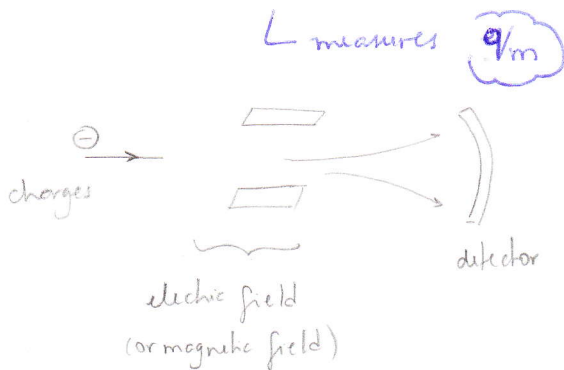 L measures q/m
⊖
charges
detector
electric field
(or magnetic field)